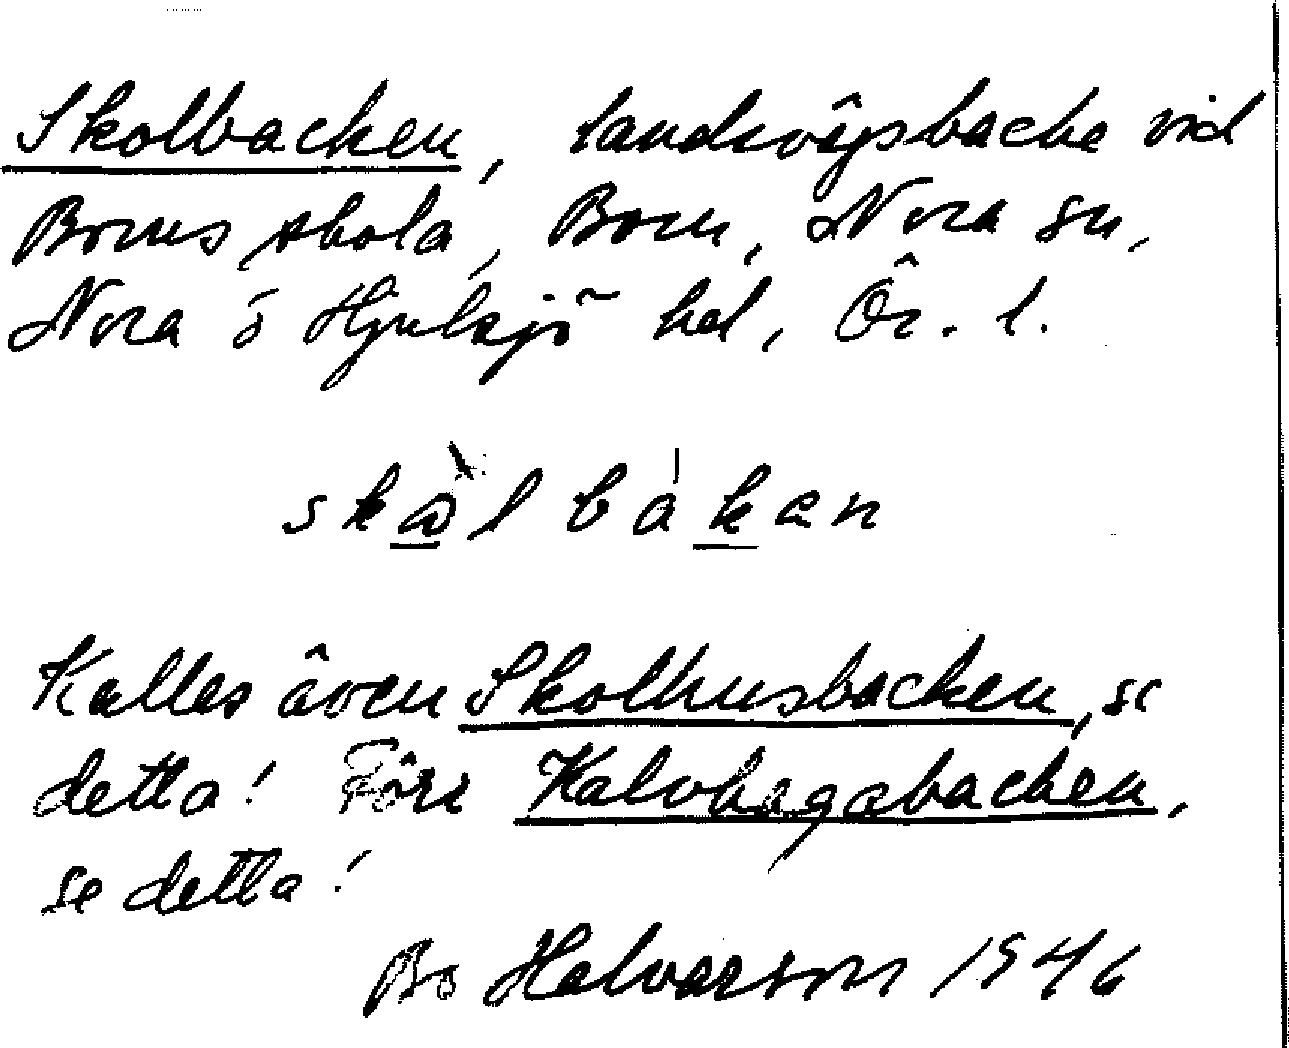 Skolbacken, landsvägsbacke vid
Borns skola, Born, Nora sn,
Nora o Hjulsjö hd, Ör. l.
skωlbakan
Kalles även Skolhusbacken, se
detta! Förr Kalvhagsbacken,
se detta!
Bo Halvarson 1946